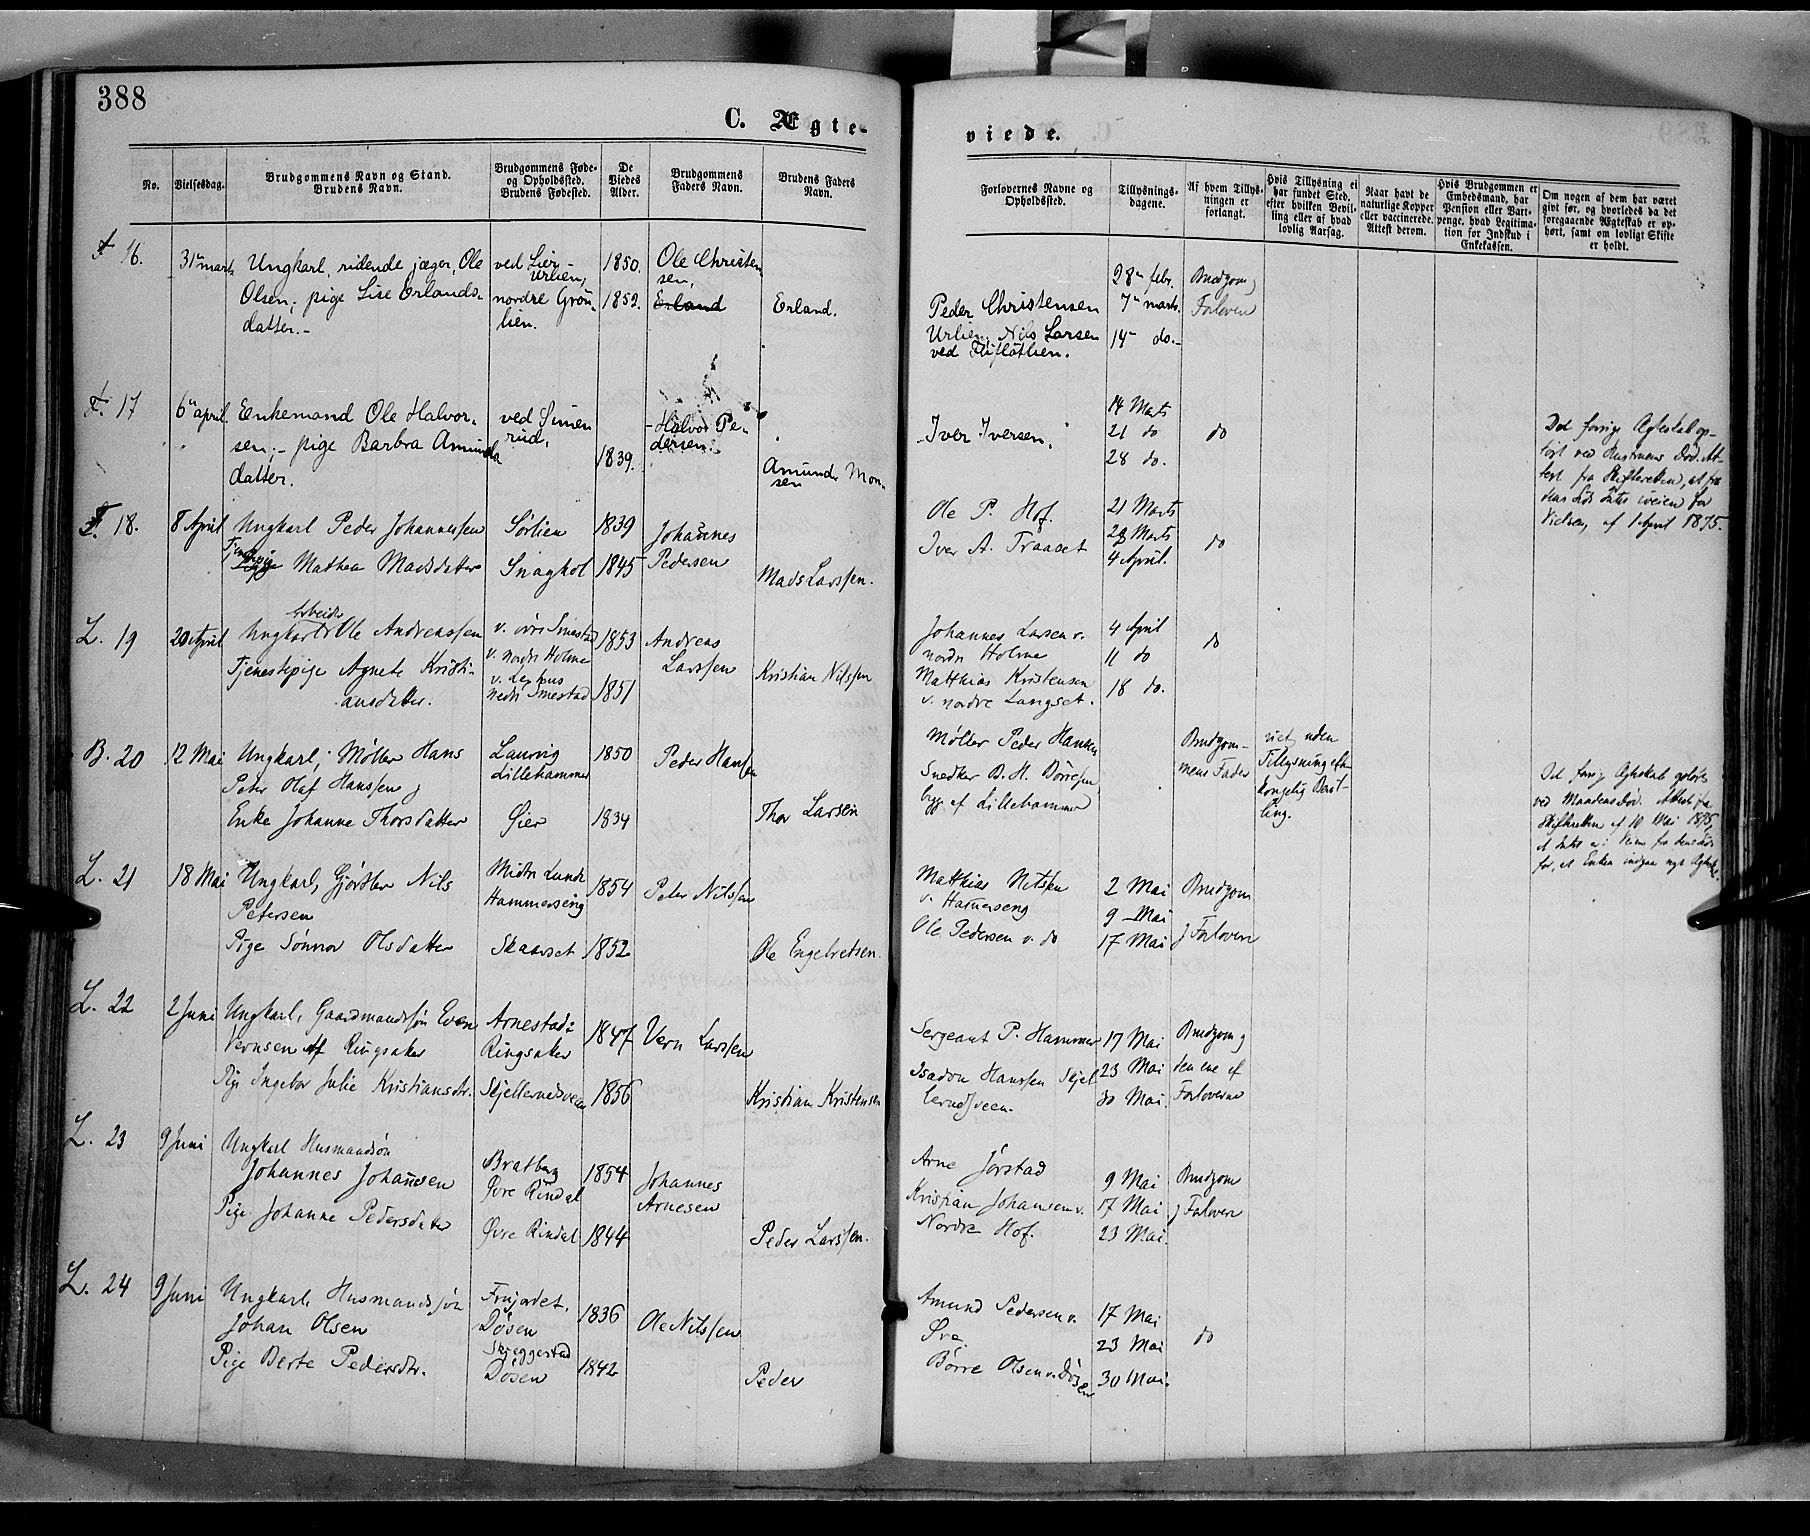 388
C. Ægte-
viede.
No.
Vielsesdag.
Brudgommens Navn og Stand.
Brudens Navn.
Brudgommens Føde-
og Opholdsted.
Brudens Fødested.
De
Viedes
Alder.
Brudgommens
Faders Navn.
Brudens Faders
Navn.
Forlovernes Navne og
Opholdsted.
Tillysnings-
dagene.
Af hvem Tillys-
ningen er
forlangt.
Hvis Tillysning ei
har fundet Sted,
efter hvilken Bevil-
ling eller af hvad
lovlig Aarsag.
Naar havt de
naturlige Kopper
eller vaccinerede.
Attest derom.
Hvis Brudgommen er
Embedsmand, har
Pension eller Vart-
penge, hvad Legitima-
tion for Indskud i
Enkekassen.
Om nogen af dem har været
givt før, og hvorledes da det
foregaaende Ægteskab er op-
hørt, samt om lovligt Skifte
er holdt.
16.
31te marts
Ungkarl, ridende jæger, Ole
Olsen; pige Lise Erlands-
datter.-
ved Lier
Urlien,
nordre Grøn-
lien.
1850.
1852.
Ole Christen-
sen,
Erland
Erland.
Peder Christensen
Urlien, Nils Larsen
ved
28de febr.
7de marts.
14de do.-
Brudgom
Forlovere
F. 17
6te april.
Enkemand Ole Halvor-
sen;- pige Barbra Amunds
datter.
ved Simen
rud.
1839.
Halvor Pe-
dersen.
Amunde Mon-
sen
Iver Iversen.
14 Marts
21 do
28 do.
do
Det forrige Ægteskab op-
hørt ved Hustruens Død. At-
test fra Skifteretten, at fra
dens Side Intet iveien for
Vielsen, af 1 April 1875.
F. 18.
8 April
Ungkarl Peder Johannessen
Tjenestepige Mathea Madsdatter
Sørlien
Snaghol
1839
1845
Johannes
Pedersen
Mads Larssen.
Ole P. Hof.
Iver A. Traaset
21 Marts
28 Marts
4 April.
do
L. 19
20 April
Arbeider
Ungkarl Ole Andreassen
Tjenestepige Agnete Kristi-
ansdatter.
v. øvre Smestad
v. nordre Holme
v.
nedre Smestad
1853
1851
Andreas
Larssen
Kristian Nilssen
Johannes Larsen v.
nordre Holme
Matthias Kristensen
v. nordre Langset.
4 April
11 do
18 do.
do
B. 20
12 Mai
Ungkarl, Møller Hans
Peter Olaf Hanssen
Enke Johanne Thorsdatter
Laurvig
Lillehammer
Øier
1850
1834
Peder Hansen
Thor Larsen
Møller Peder Hansen
Snedker B. H. Børresen
begge af Lillehammer
Brudgom-
mens Fader
viet uden
Tillysning efter
kongelig Bevil-
ling.
Det forrige Ægteskab opløst
ved Mandens Død. Attest fra
Skifteretten af 10 Mai 1875,
at Intet er i Veien fra dens Side
for, at Enken indgaar nyt Ægtesk.
L. 21
18 Mai
Ungkarl, Gjørtler Nils
Petersen
Pige Sønnov Olsdatter
Midtre Lunde
Hammerseng
Skaarset
1854
1852
Peter Nilssen
Ole Engebretsen.
Matthias Nilssen
v. Hammerseng
Ole Pedersen v. do
2 Mai
9 Mai
17 Mai
Brudgom
Forlovere
L. 22
2 Juni
Ungkarl, Gaardmandssøn Even
Vernsen af Ringsaker
Pige Ingebor Julie Kristiansdtr.
Arnestad i
Ringsaker
Skjellerudsveen
1847
1856
Vern Larssen
Kristian Kristensen
Sergeant P. Hammer
Isadon Hanssen Skjel-
lerudsveen.
17 Mai
23 Mai
30 Mai.
Brudgom
den ene af
Forloverne
L. 23
9 Juni
Ungkarl Husmandssøn
Johannes Johannesen
Pige Johanne Pedersdatter
Bratberg
Øvre Rindal
Øvre Rindal
1854
1844
Johannes
Arnesen
Peder Larssen.
Arne Jørstad
Kristian Johansen v.
Nordre Hof.
9 Mai
17 Mai
23 Mai.
Brudgom
Forlovere
L. 24
9 Juni
Ungkarl, Husmandssøn
Johan Olsen
Pige Berte Pedersdtr.
Frujordet,
Døsen
Skjeggestad
Døsen
1836
1842
Ole Nilssen
Peder
Amund Pedersen v.
Øra
Børre Olsen v. Døsen
17 Mai
23 Mai
30 Mai.
do